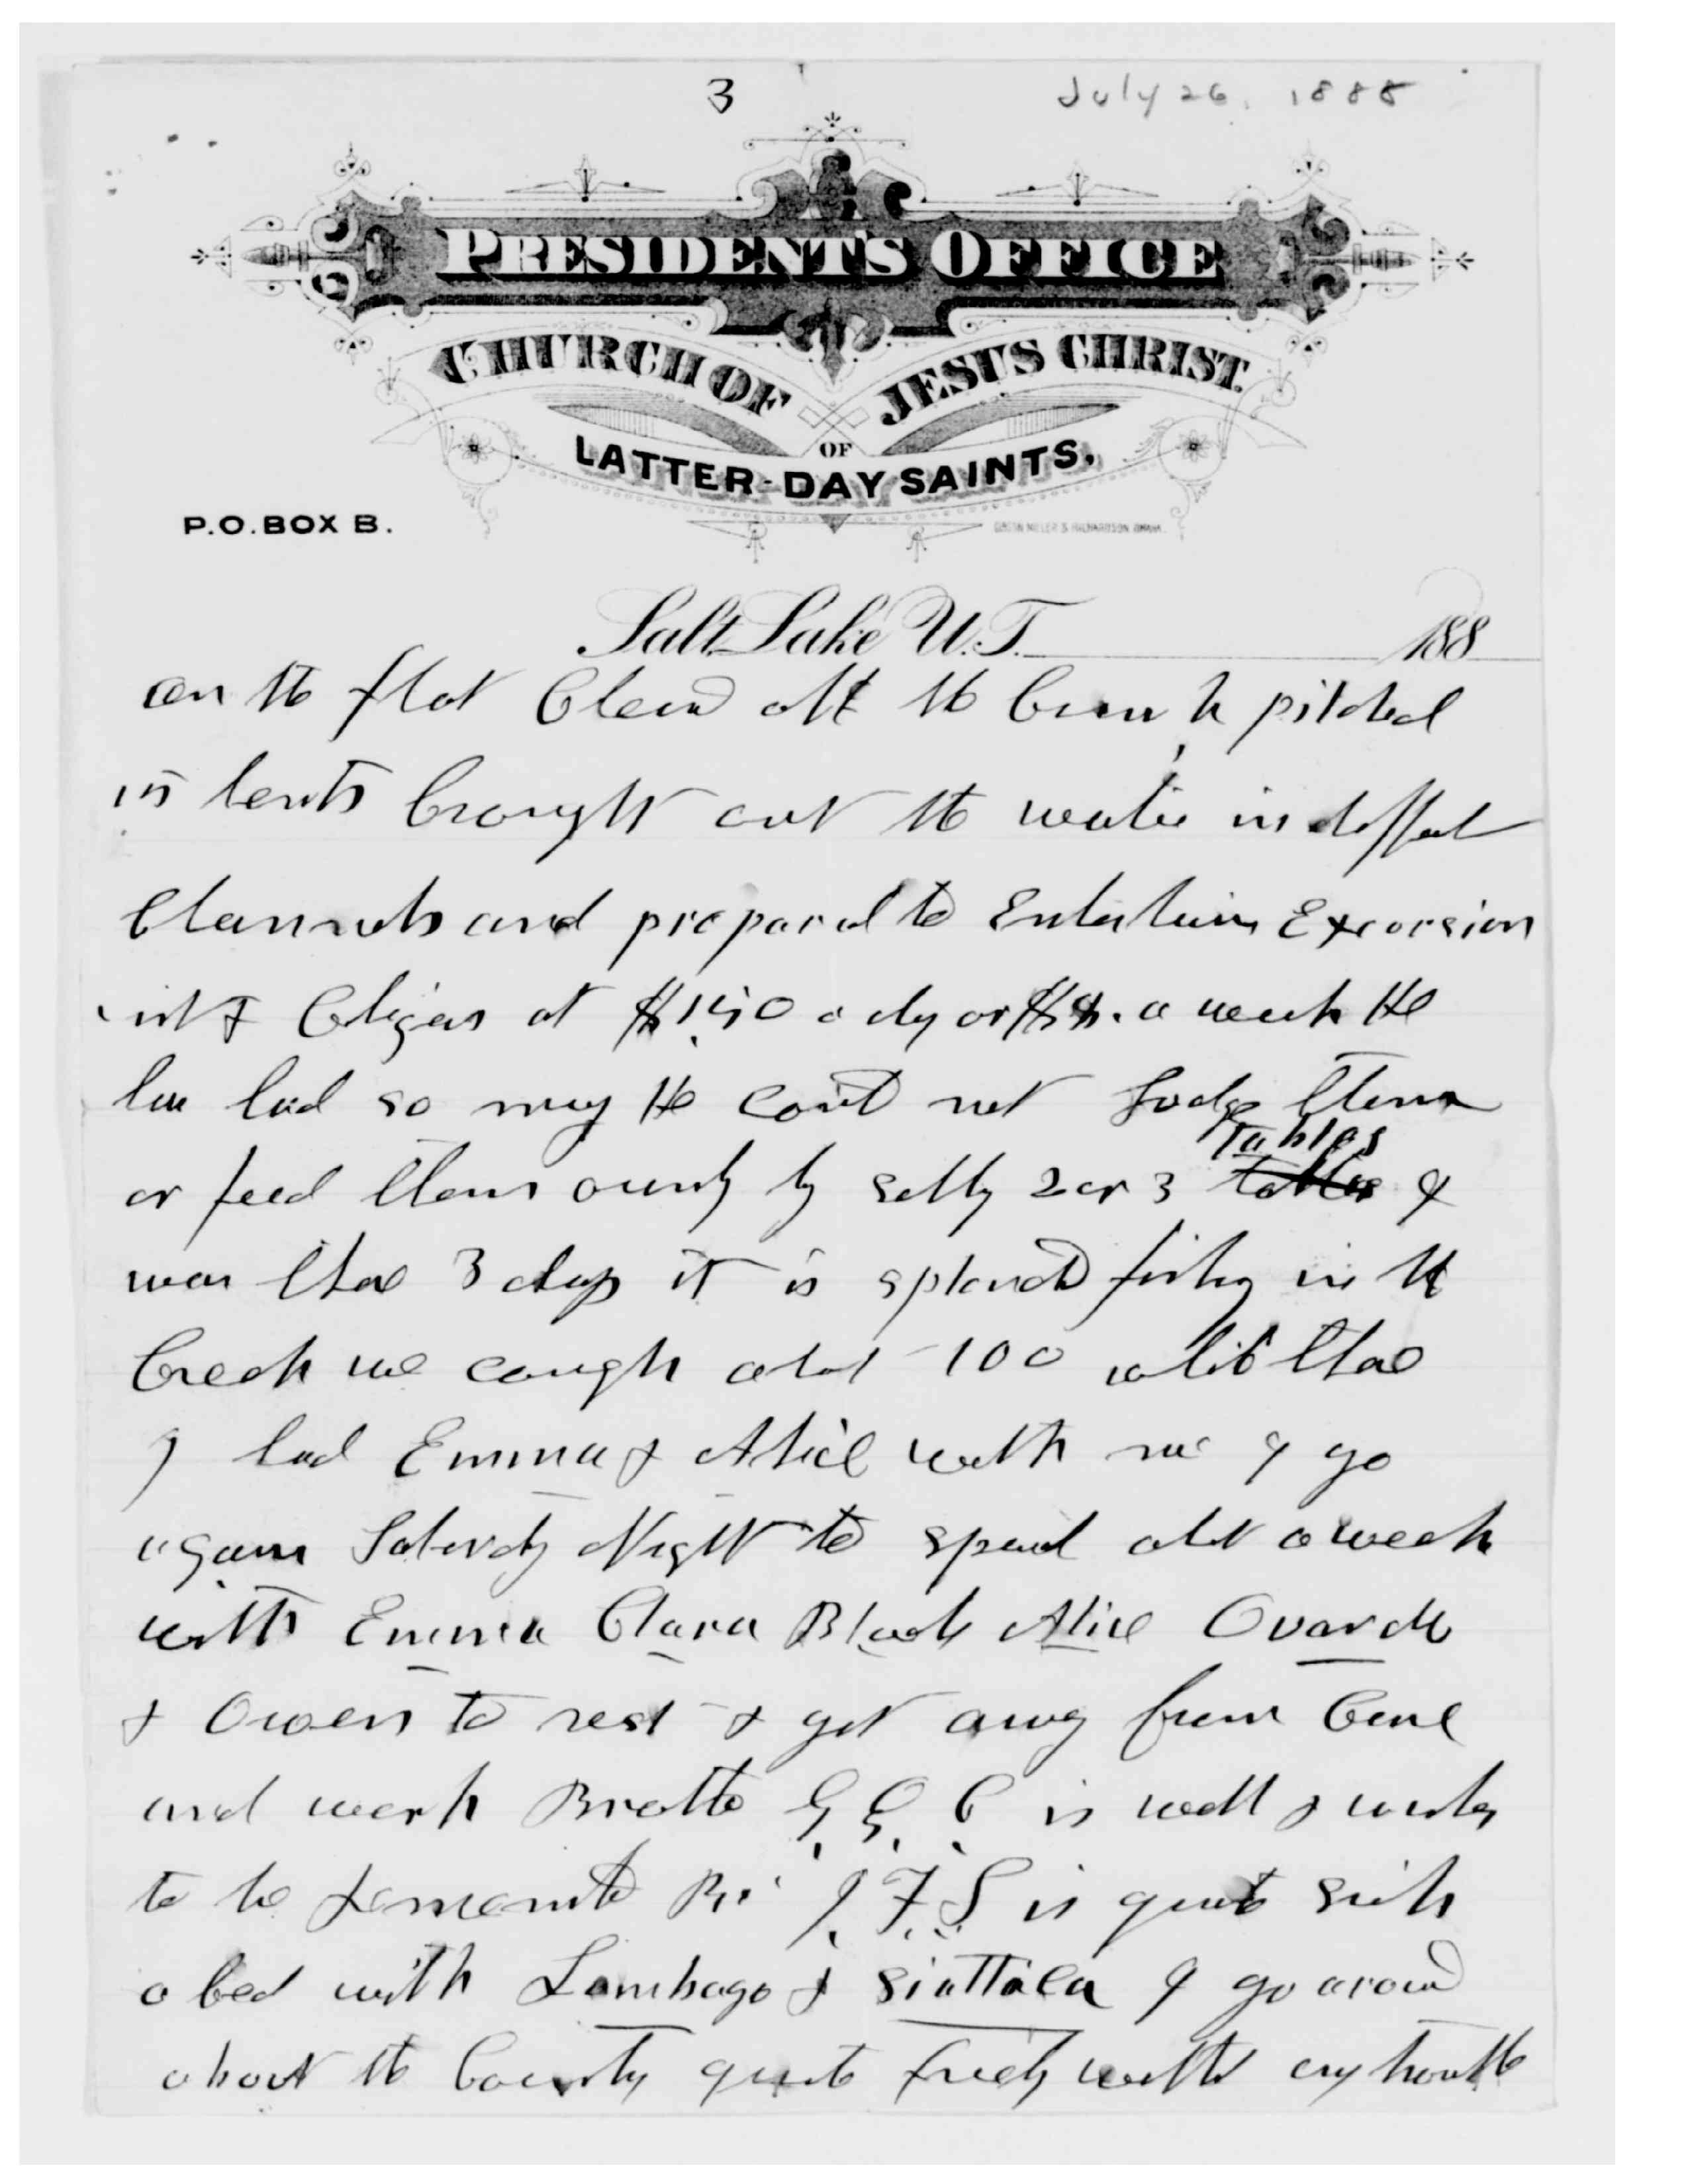 3 July 26, 1888
PRESIDENT'S OFFICE
CHURCH OF JESUS CHRIST
OF
LATTER-DAY SAINTS.
P.O. BOX B.
Salt Lake U.T. 188
on the flat Cleard off the brush pitched
15 tents brought out the water in diffent
Channels and prepared to Entertain Excorsion
at $1.50 a day or a week He
has had so many He could not Lodge them
or feed them ownly by setting 2 or 3 Tables tables &
was thare 3 days it is splendid fishing in the
Creek we caugh about 100 while thare
I had Emma & Alice with me I go
again Saturdy Night to spend about a week
with Emma Clara Blanch Alice Ovando
& Owen to rest & get away from Care
and work Brother G. Q. C is well & wants
to be Remembd Br J. F. S is quite sick
a bed with Lombago & Siattaca I go around
about the County quite freely without any trouble